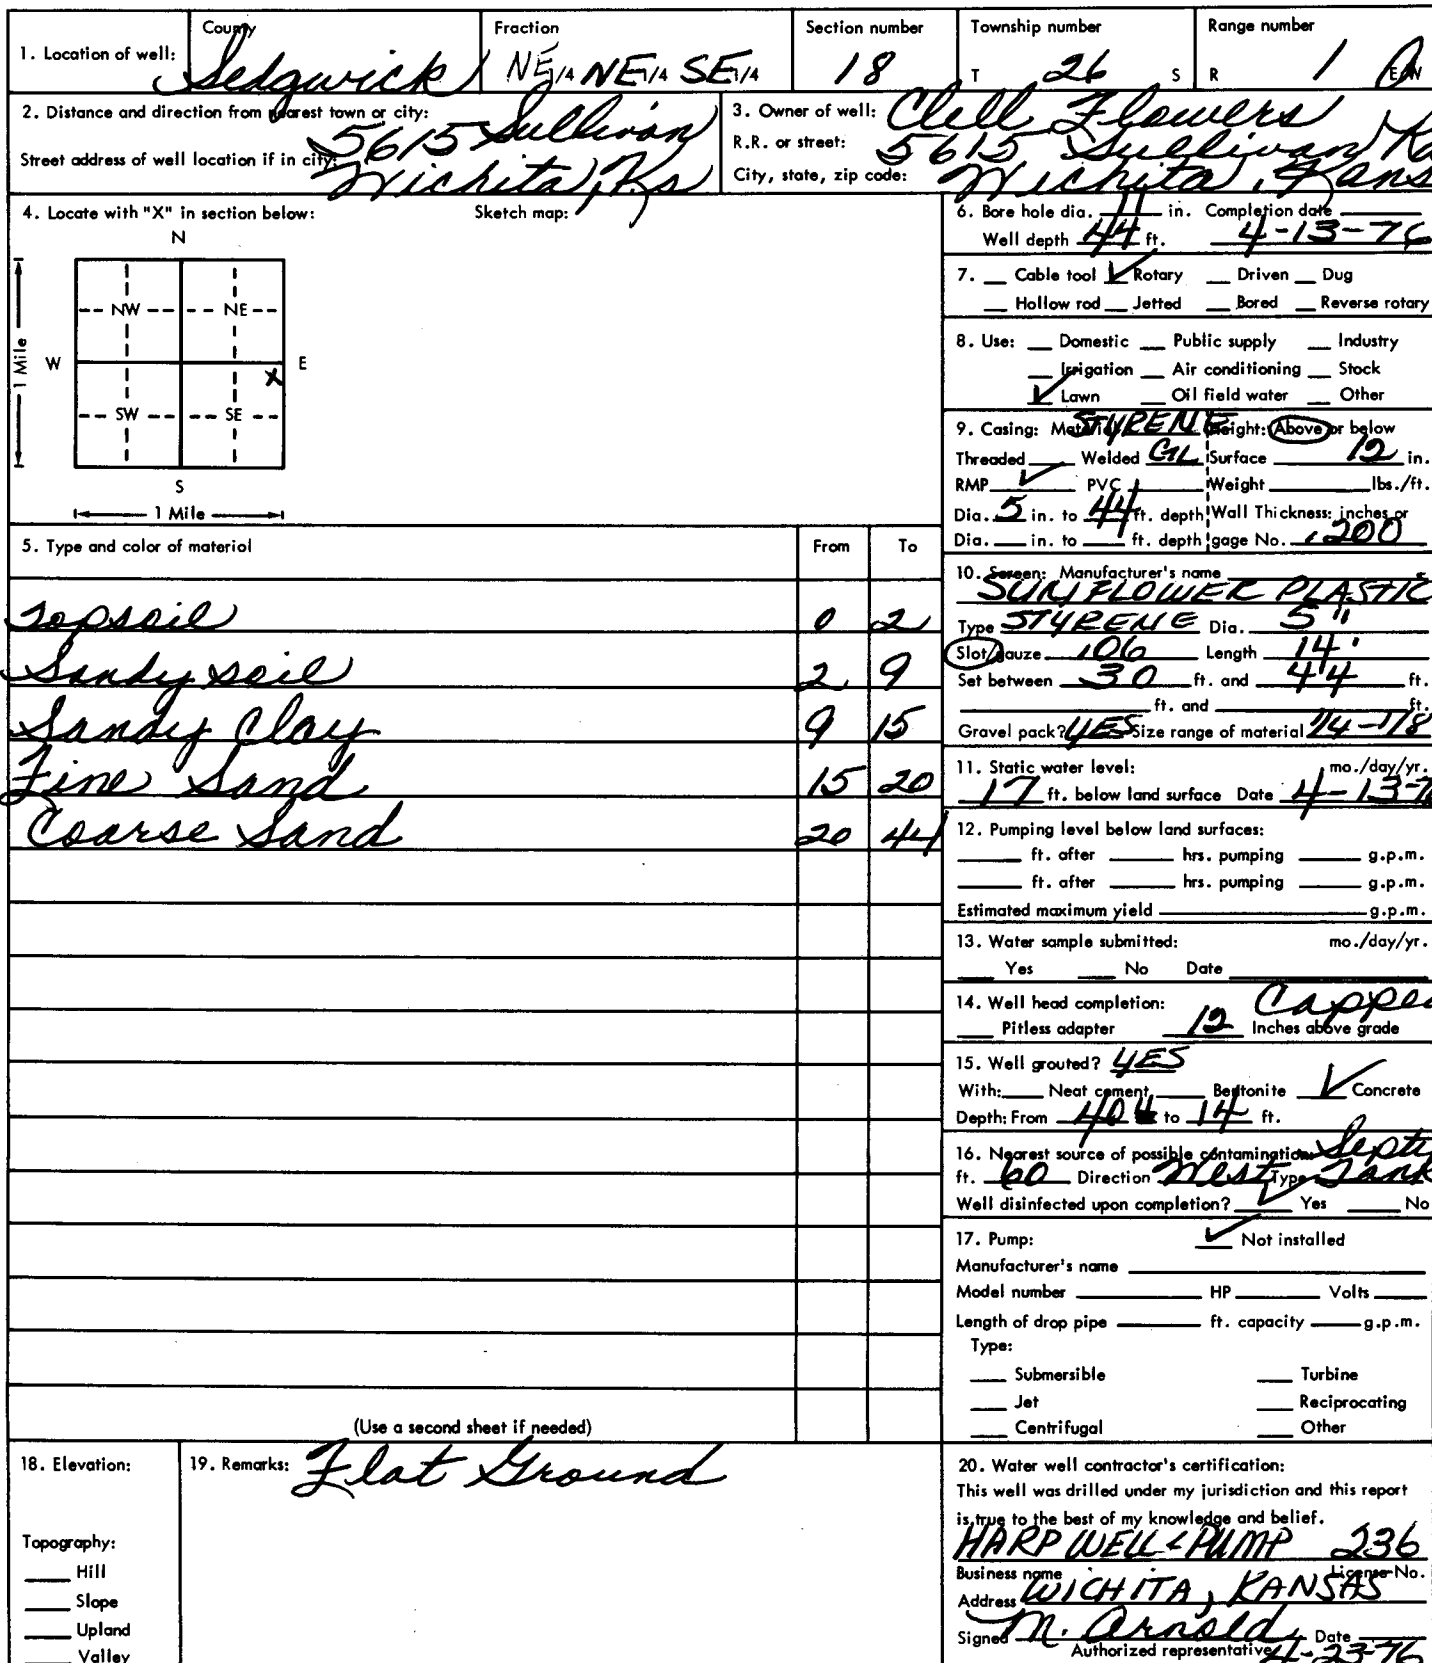 1. Location of well: County Sedgwick Fraction NE 1/4 NE 1/4 SE 1/4 Section number 18 Township number T 26 S Range number R 1 E/W
2. Distance and direction from nearest town or city: 5615 Sullivan
Street address of well location if in city: Wichita, Ks
3. Owner of well: Clell Flowers
R.R. or street: 5615 Sullivan
City, state, zip code: Wichita, Kans
4. Locate with "X" in section below: Sketch map:
N
NW NE
1 Mile W E
X
SW SE
S
1 Mile
5. Type and color of material From To
Topsoil 0 2
Sandy soil 2 9
Sandy Clay 9 15
Fine Sand 15 20
Coarse Sand 20 44
(Use a second sheet if needed)
6. Bore hole dia. 11 in. Completion date
Well depth 44 ft. 4-13-76
7. Cable tool ✓ Rotary Driven Dug
Hollow rod Jetted Bored Reverse rotary
8. Use: Domestic Public supply Industry
Irrigation Air conditioning Stock
✓ Lawn Oil field water Other
9. Casing: Material STYRENE Height: Above or below
Threaded Welded GL Surface 12 in.
RMP ✓ PVC Weight lbs./ft.
Dia. 5 in. to 44 ft. depth Wall Thickness: inches or
Dia. in. to ft. depth gage No. .200
10. Screen: Manufacturer's name
SUNFLOWER PLASTIC
Type STYRENE Dia. 5"
Slot/gauze .106 Length 14'
Set between 30 ft. and 44 ft.
ft. and ft.
Gravel pack? YES Size range of material 1/4-1/8
11. Static water level: mo./day/yr.
17 ft. below land surface Date 4-13-7
12. Pumping level below land surfaces:
ft. after hrs. pumping g.p.m.
ft. after hrs. pumping g.p.m.
Estimated maximum yield g.p.m.
13. Water sample submitted: mo./day/yr.
Yes No Date
14. Well head completion: Capped
Pitless adapter 12 Inches above grade
15. Well grouted? YES
With: Neat cement Bentonite ✓ Concrete
Depth: From to 14 ft.
16. Nearest source of possible contamination: Septi
ft. 60 Direction West Type Tank
Well disinfected upon completion? ✓ Yes No
17. Pump: ✓ Not installed
Manufacturer's name
Model number HP Volts
Length of drop pipe ft. capacity g.p.m.
Type:
Submersible Turbine
Jet Reciprocating
Centrifugal Other
18. Elevation:
Topography:
Hill
Slope
Upland
Valley
19. Remarks: Flat Ground
20. Water well contractor's certification:
This well was drilled under my jurisdiction and this report
is true to the best of my knowledge and belief.
HARP WELL & PUMP 236
Business name License No.
Address WICHITA, KANSAS
Signed M. Arnold Date 4-23-76
Authorized representative